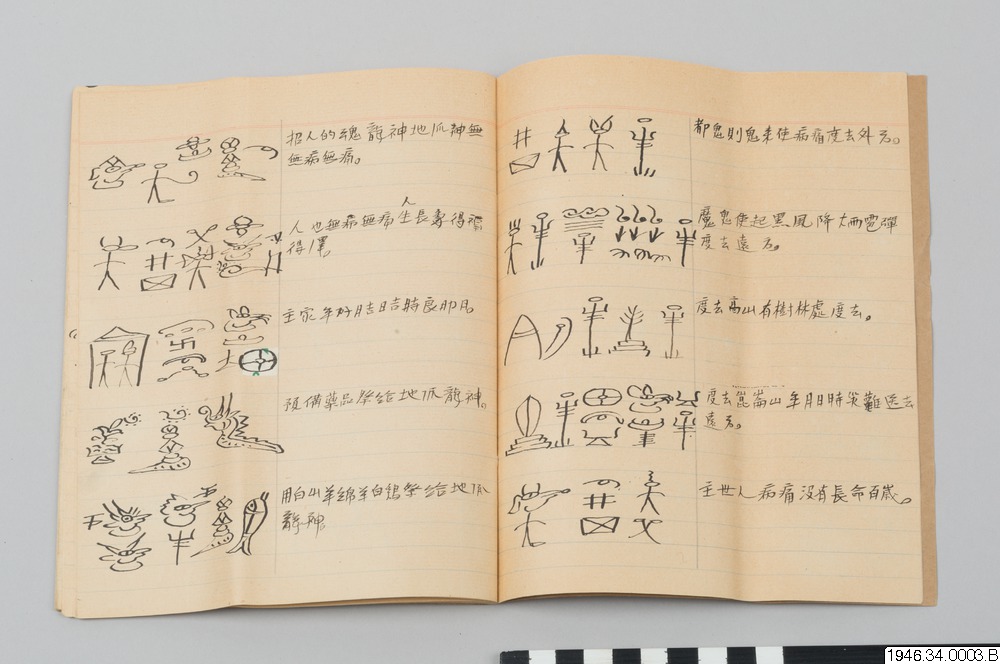 招人的魂龍神地爪神無
無病無痛。
人也無希無病生人長壽得福
得
主家年好月吉日吉時良
預備藥品祭給地爪龍神。
用白山羊綿羊白鴉祭給地爪
龍神
都鬼則鬼来使病痛度去外方。
魔鬼使起黑風降大雨電彈
度去遠方。
度去高山有樹林處度去。
度去崑崙山年月日時災難送去
遠方。
主世人病痛没有長命百歲。
1946.34.0003.B